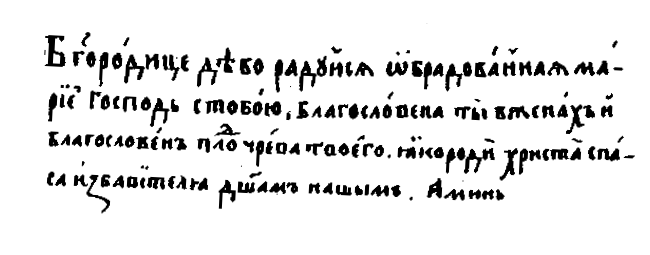 Бг҃оро́дице дѣво ра́дуйсѧ ѡ҆брадова́ннаѧ ма́-
рїе Господь с тобо́ю, благосло́вена ты̀ в женах и҆
благослове́нъ пло́д чре́ва твоего̀. ꙗ҆́ко роди̏ христа̀ спа́-
са и҆збавїтелѧ дш҃амъ нашымъ. Аминь